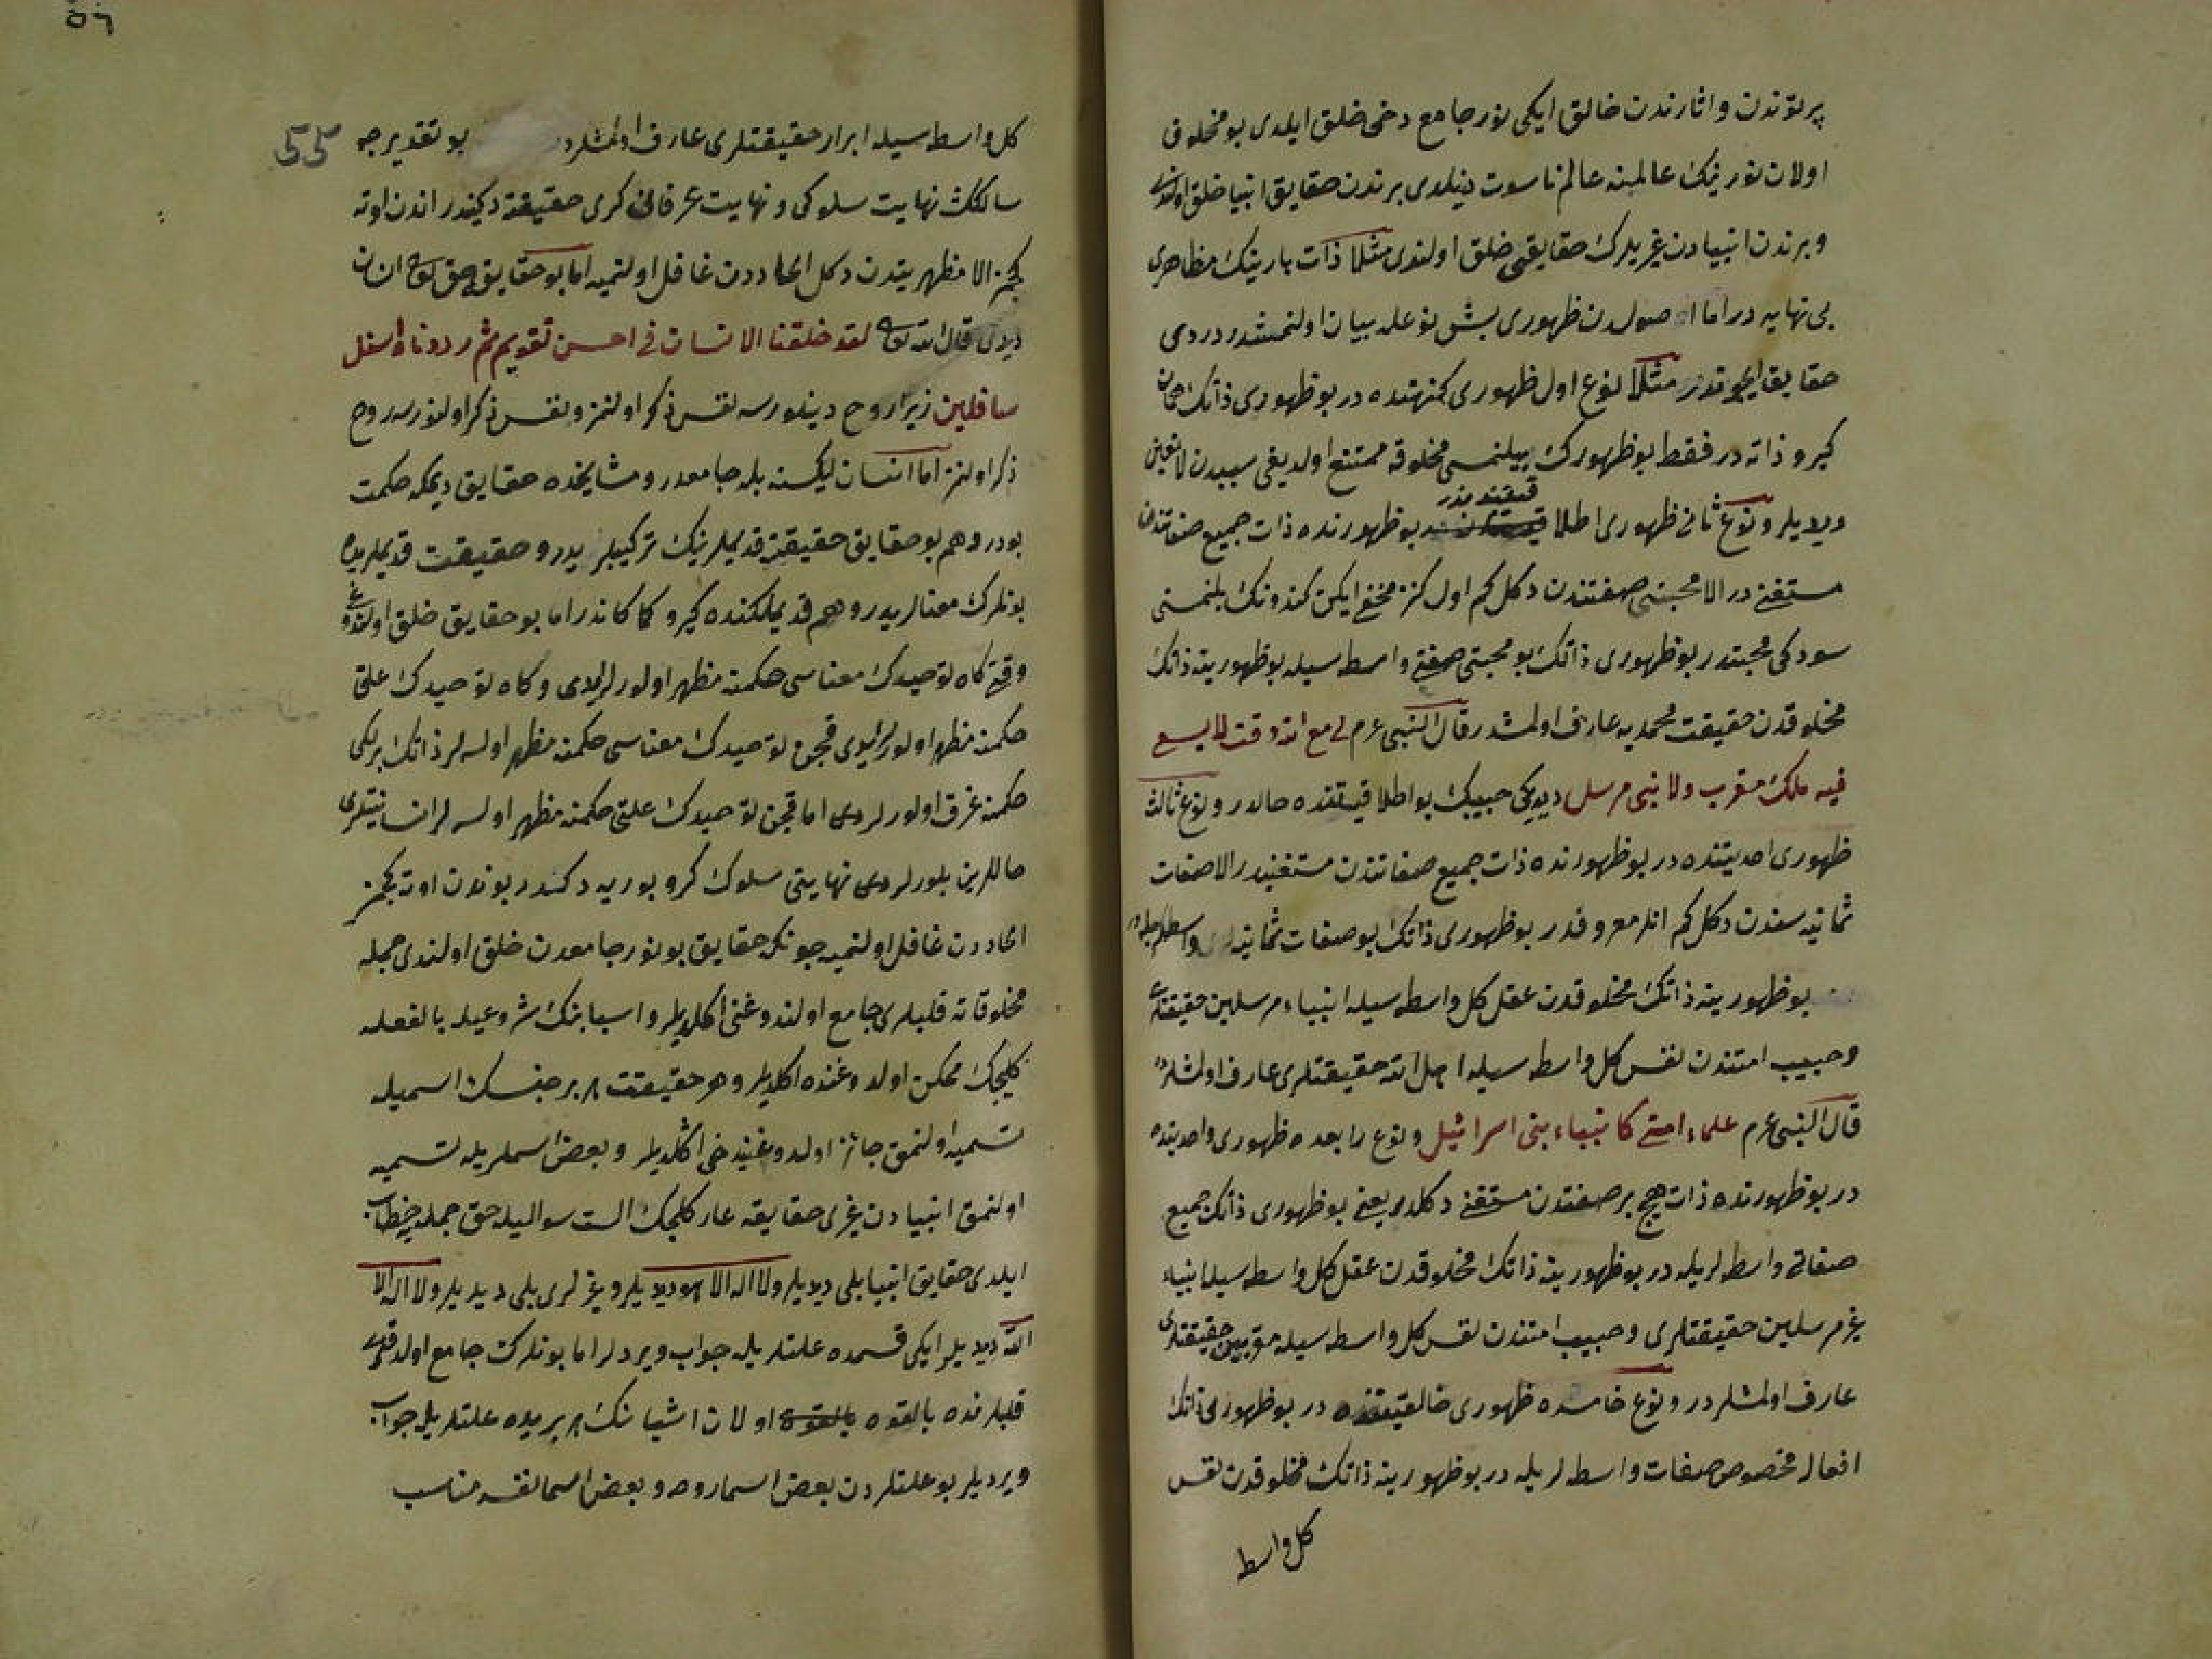 پرتوندن و اثارندن خالق ایکی نور جامع دخی خلق ایلدی بو مخلوق
اولان نورینک عالمنه عالم ناسوت دینلدی برندن حقایق انبیا خلق اولندی
و برندن انبیادن غیریلرک حقایقی خلق اولندی مثلا ذات بارینک مظاهری
بی نهایه در اما اصولدن ظهوری بش نوعله بیان اولنمشدر دردی
حقایق مثلا نوع اول ظهوری کنهنده در بو ظهوری ذاتک همان
کیرو ذاته در فقط بو ظهورک بیلنمسی مخلوقه ممتنع اولدیغی سببدن لا تعین
دیدیلر و نوع ثانی ظهوری اطلاقیتنده در بو ظهورنده ذات جمیع صفاتندن
مستغنی در الا محبتی صفتندن دکل کم اول کنز مخفی ایکن کندونک بلنمسنی
سودکی محبتدر بو ظهوری ذاتک بو محبتی صفتی واسطه سیله بو ظهورینه ذاتک
مخلوقدن حقیقت محمدیه عارف اولمشدر قال النبی عرم لی مع الله وقت لا یسع
فیه ملک مقرب ولا نبی مرسل دیدیکی حبیبک بو اطلاقیتنده حالدر و نوع ثالث
ظهوری احدیتنده در بو ظهورنده ذات جمیع صفاتندن مستغنیدر الا صفات
ثمانیه سندن دکل کم انلر معروفدر بو ظهوری ذاتک بو صفات ثمانیه
بو ظهورینه ذاتک مخلوقدن عقل کل واسطه سیله انبیاء مرسلین حقیقتلری
و حبیب امتندن نفس کل واسطه سیله اهل الله حقیقتلری عارف اولمشلر
قال النبی عرم علماء امتی کانبیاء بنی اسرائیل و نوع رابعده ظهوری واحدیتنده
در بو ظهورنده ذات هیچ بر صفتدن مستغنی دکلدر یعنی بو ظهوری ذاتک جمیع
صفاتی واسطه لریله در بو ظهورینه ذاتک مخلوقدن عقل کل واسطه سیله انبیاء
غیر مرسلین حقیقتلری و حبیب امتندن نفس کل واسطه سیله مقربین حقیقتلری
عارف اولمشلر در و نوع خامسده ظهوری خالقیتنده در بو ظهوری ذاتک
افعال مخصوص صفات واسطه لریله در بو ظهورینه ذاتک مخلوقدن نفس
کل واسط
٥٦
55
کل واسطه سیله ابرار حقیقتلری عارف اولمشلر بو تقدیرجه
سالکک نهایت سلوکی و نهایت عرفانی کری حقیقته دکیندر اندن اوته
کچمز الا مظهریتدن دکل اتحاددن غافل اولنمیه اما بو حقایقه حق تعالی انسان
دیدی قال الله تعالی لقد خلقنا الانسان فی احسن تقویم ثم رددناه اسفل
سافلین زیرا روح دینلورسه نفس ذکر اولنمز و نفس ذکر اولنورسه روح
ذکر اولنمز اما انسان ایکیسنه بله جامعدر و مشایخده حقایق دیمکه حکمت
بودر و هم بو حقایق حقیقت قدیملرینک ترکیبلریدر و حقیقت قدیملریده
بونلرک معنالریدر و هم قدیملکنده کیرو کاکاندر اما بو حقایق خلق اولندوغی
وقتی کاه توحیدک معناسی حکمنه مظهر اولورلردی و کاه توحیدک علتی
حکمنه مظهر اولورلردی قچن توحیدک معناسی حکمنه مظهر اولسه لر ذاتک برلکی
حکمنه غرق اولورلردی اما قچن توحیدک علتی حکمنه مظهر اولسه لر انسانیتلری
حاللرین بلورلردی نهایتی سلوک کرو بوریه دکندر بوندن اوته کچمز
اتحاددن غافل اولنمیه چونکه حقایق بو نور جامعدن خلق اولندی جمله
مخلوقاته قلبلری جامع اولندوغنی اکلدیلر و اسبابنک شروعیله بالفعله
کلیجک ممکن اولدوغنده اکلدیلر و هر حقیقتت هر بر جنسک اسمیله
تسمیه اولنمق جائز اولدوغیندخی اکلدیلر و بعض اسملریله تسمیه
اولنمق انبیادن غیری حقایقه عار کلیجک الست سوالیله حق جمله یه خطاب
ایلدی حقایق انبیا بلی دیدیلر و لا اله الا هو دیدیلر و غیرلری بلی دیدیلر و لا اله الا
الله دیدیلر ایکی قسمده علتلریله جواب ویردلر اما بونلرک جامع اولدقلری
قلبلرنده بالقوه اولان اشیانک هر بریده علتلریله جواب
ویردیلر بو علتلردن بعض اسما روحه و بعض اسما نفسه مناسب